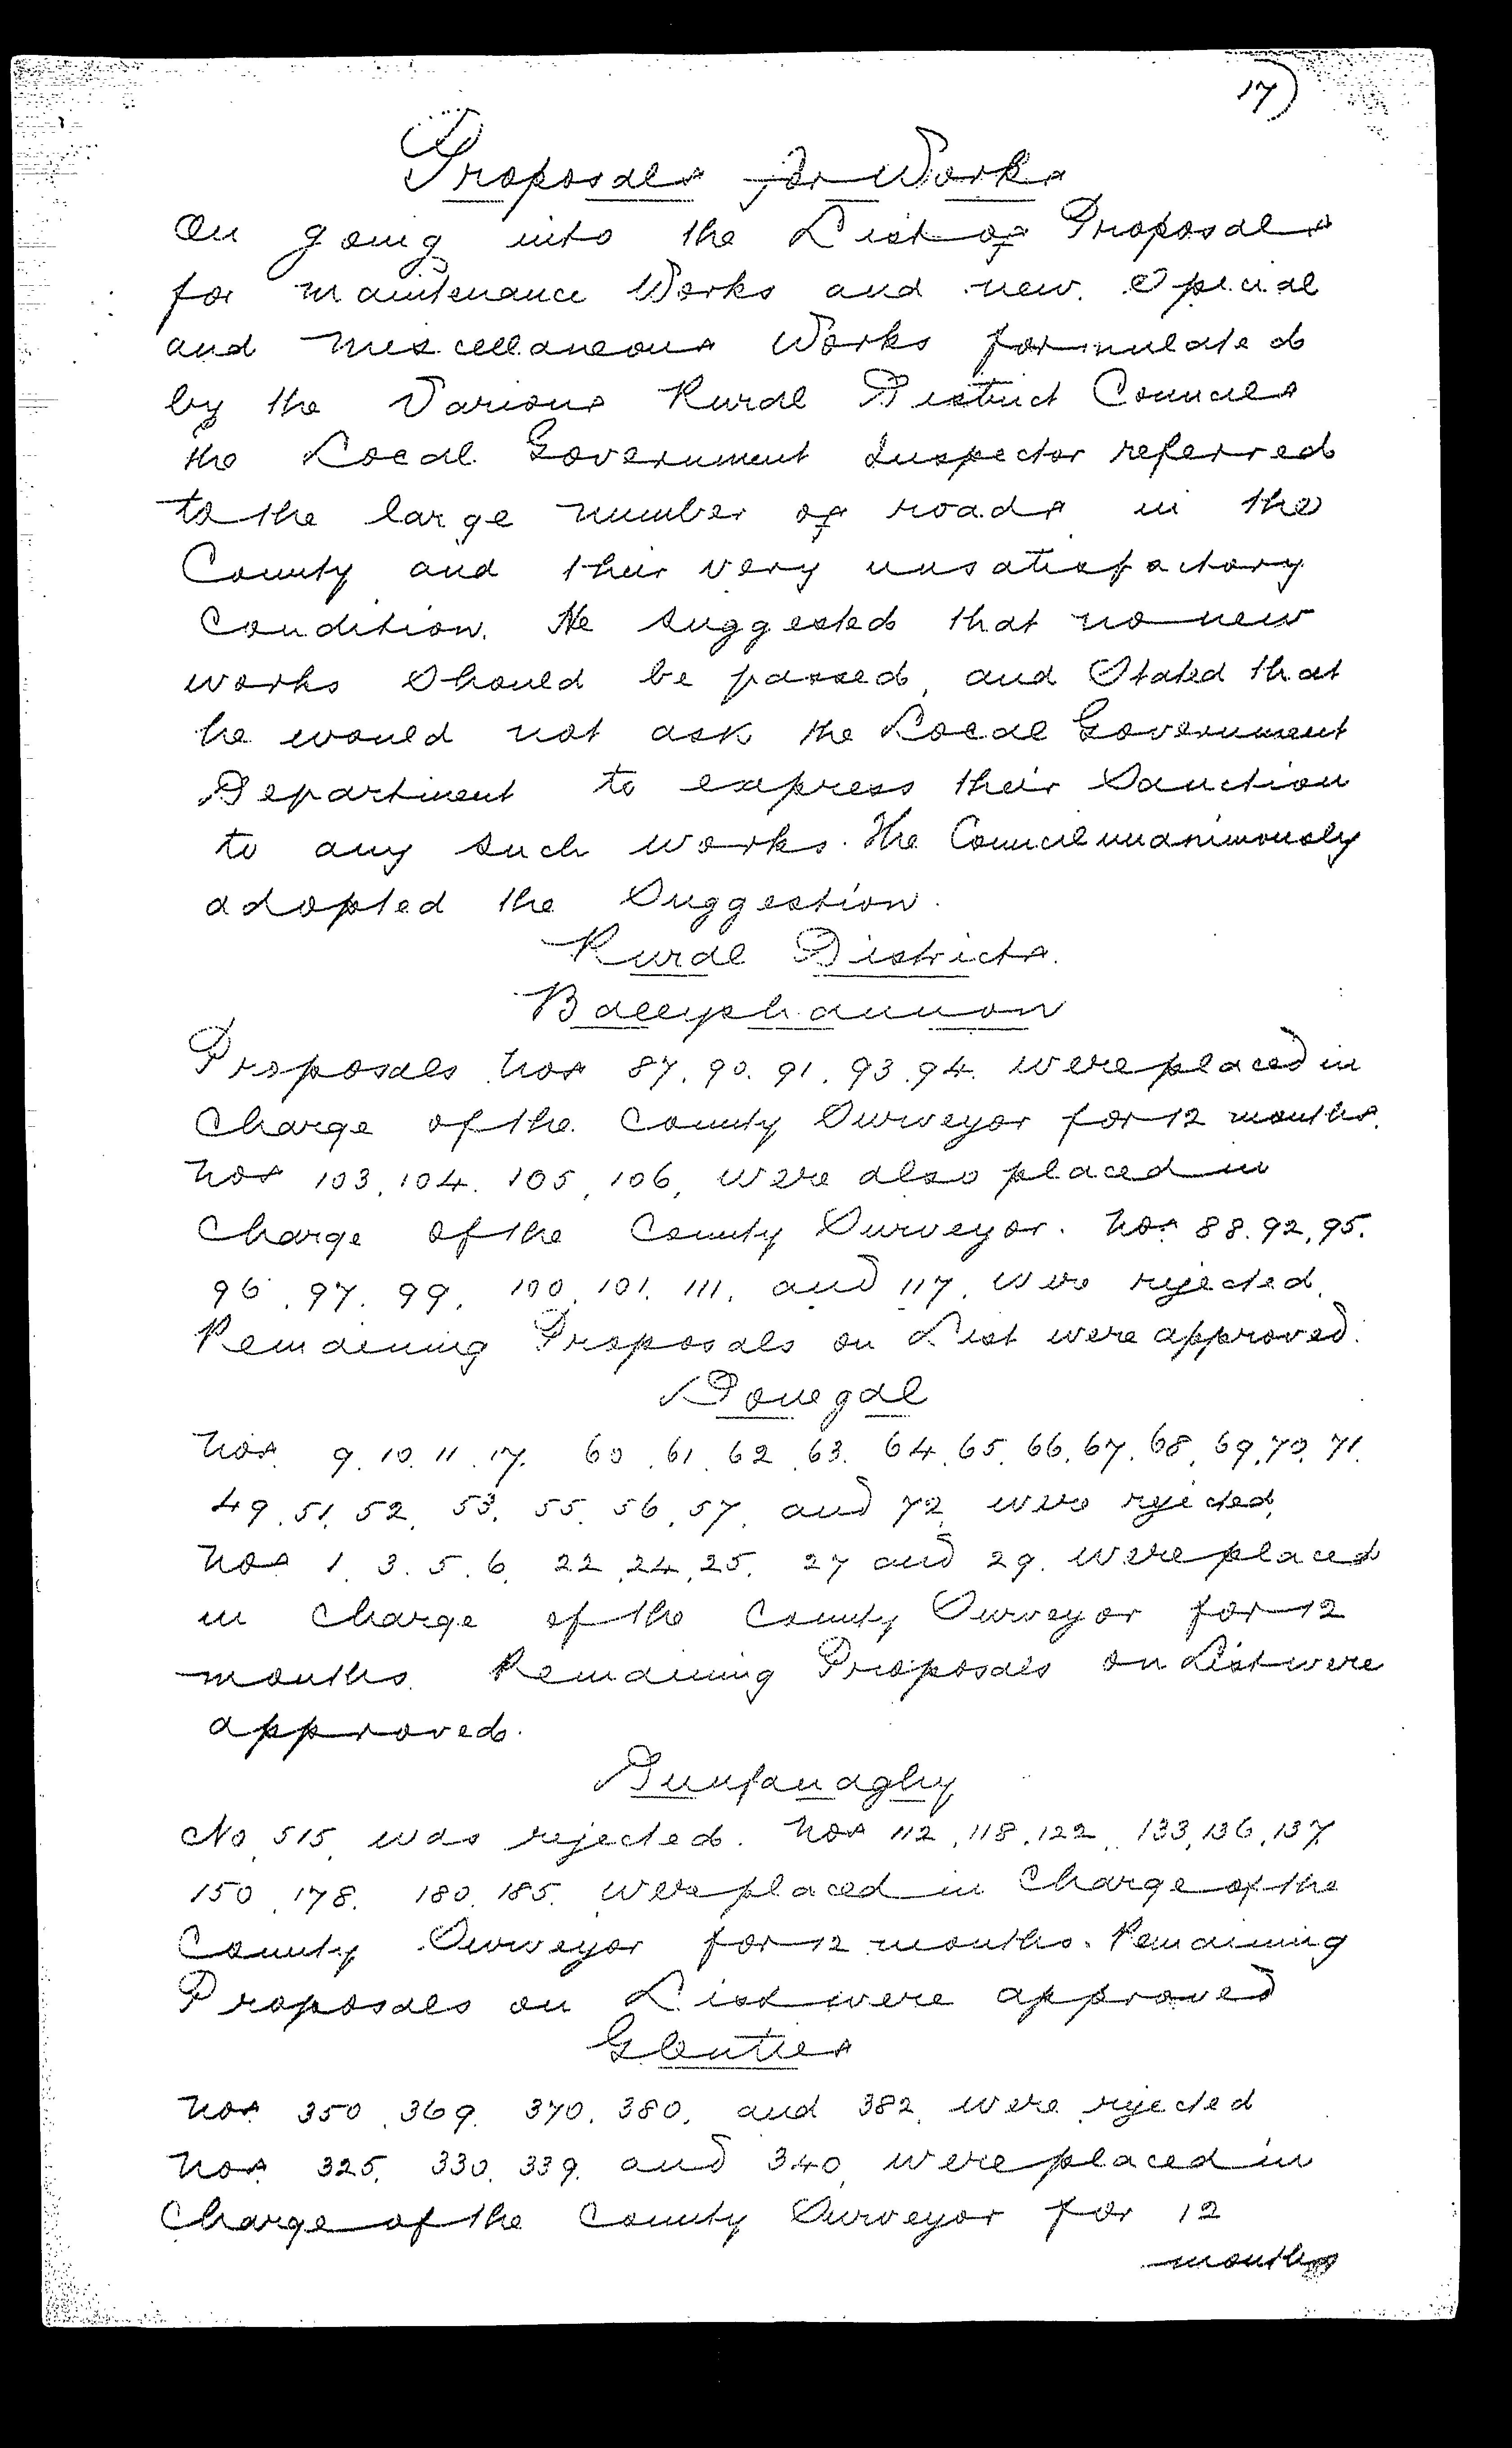 17)
Proposals for Works
On going into the List of Proposals
for maintenance Works and new. Special
and miscellaneous Works formulated
by the Various Rural District Councils
the Local Government Inspector referred
to the large number of roads in the
County and their very unsatisfactory
Condition. He suggested that no new
works should be passed, and Stated that
he would not ask the Local Government
Department to express their Sanction
to any such works. The Council unanimously
adopted the Suggestion.
Rural Districts.
Ballyshannon
Proposals Nos 87. 90. 91. 93. 94. were placed in
Charge of the County Surveyor for 12 months.
Nos 103, 104. 105, 106, were also placed in
Charge of the County Surveyor. Nos 88. 92, 95.
96. 97. 99. 100. 101. 111. and 117. were rejected.
Remaining Proposals on List were approved.
Donegal
Nos. 9. 10. 11. 17. 60. 61. 62. 63. 64. 65. 66. 67. 68. 69. 70. 71.
49. 51. 52. 53. 55. 56. 57. and 72 were rejected.
Nos 1. 3. 5. 6. 22. 24. 25. 27 and 29. were placed
in Charge of the County Surveyor for 12
months. Remaining Proposals on List were
approved.
Dunfanaghy
No. 515. was rejected. Nos 112, 118, 122, 133, 136, 137
150. 178. 180. 185. were placed in Charge of the
County Surveyor for 12 months. Remaining
Proposals on List were approved
Glenties
Nos 350. 369. 370. 380. and 382. were rejected
Nos. 325. 330. 339. and 340. were placed in
Charge of the County Surveyor for 12
months